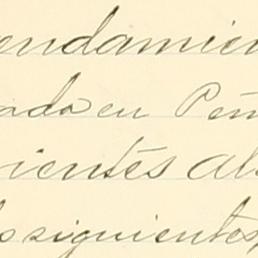 endamien
ada en Pen
rientes al
s siguientes,